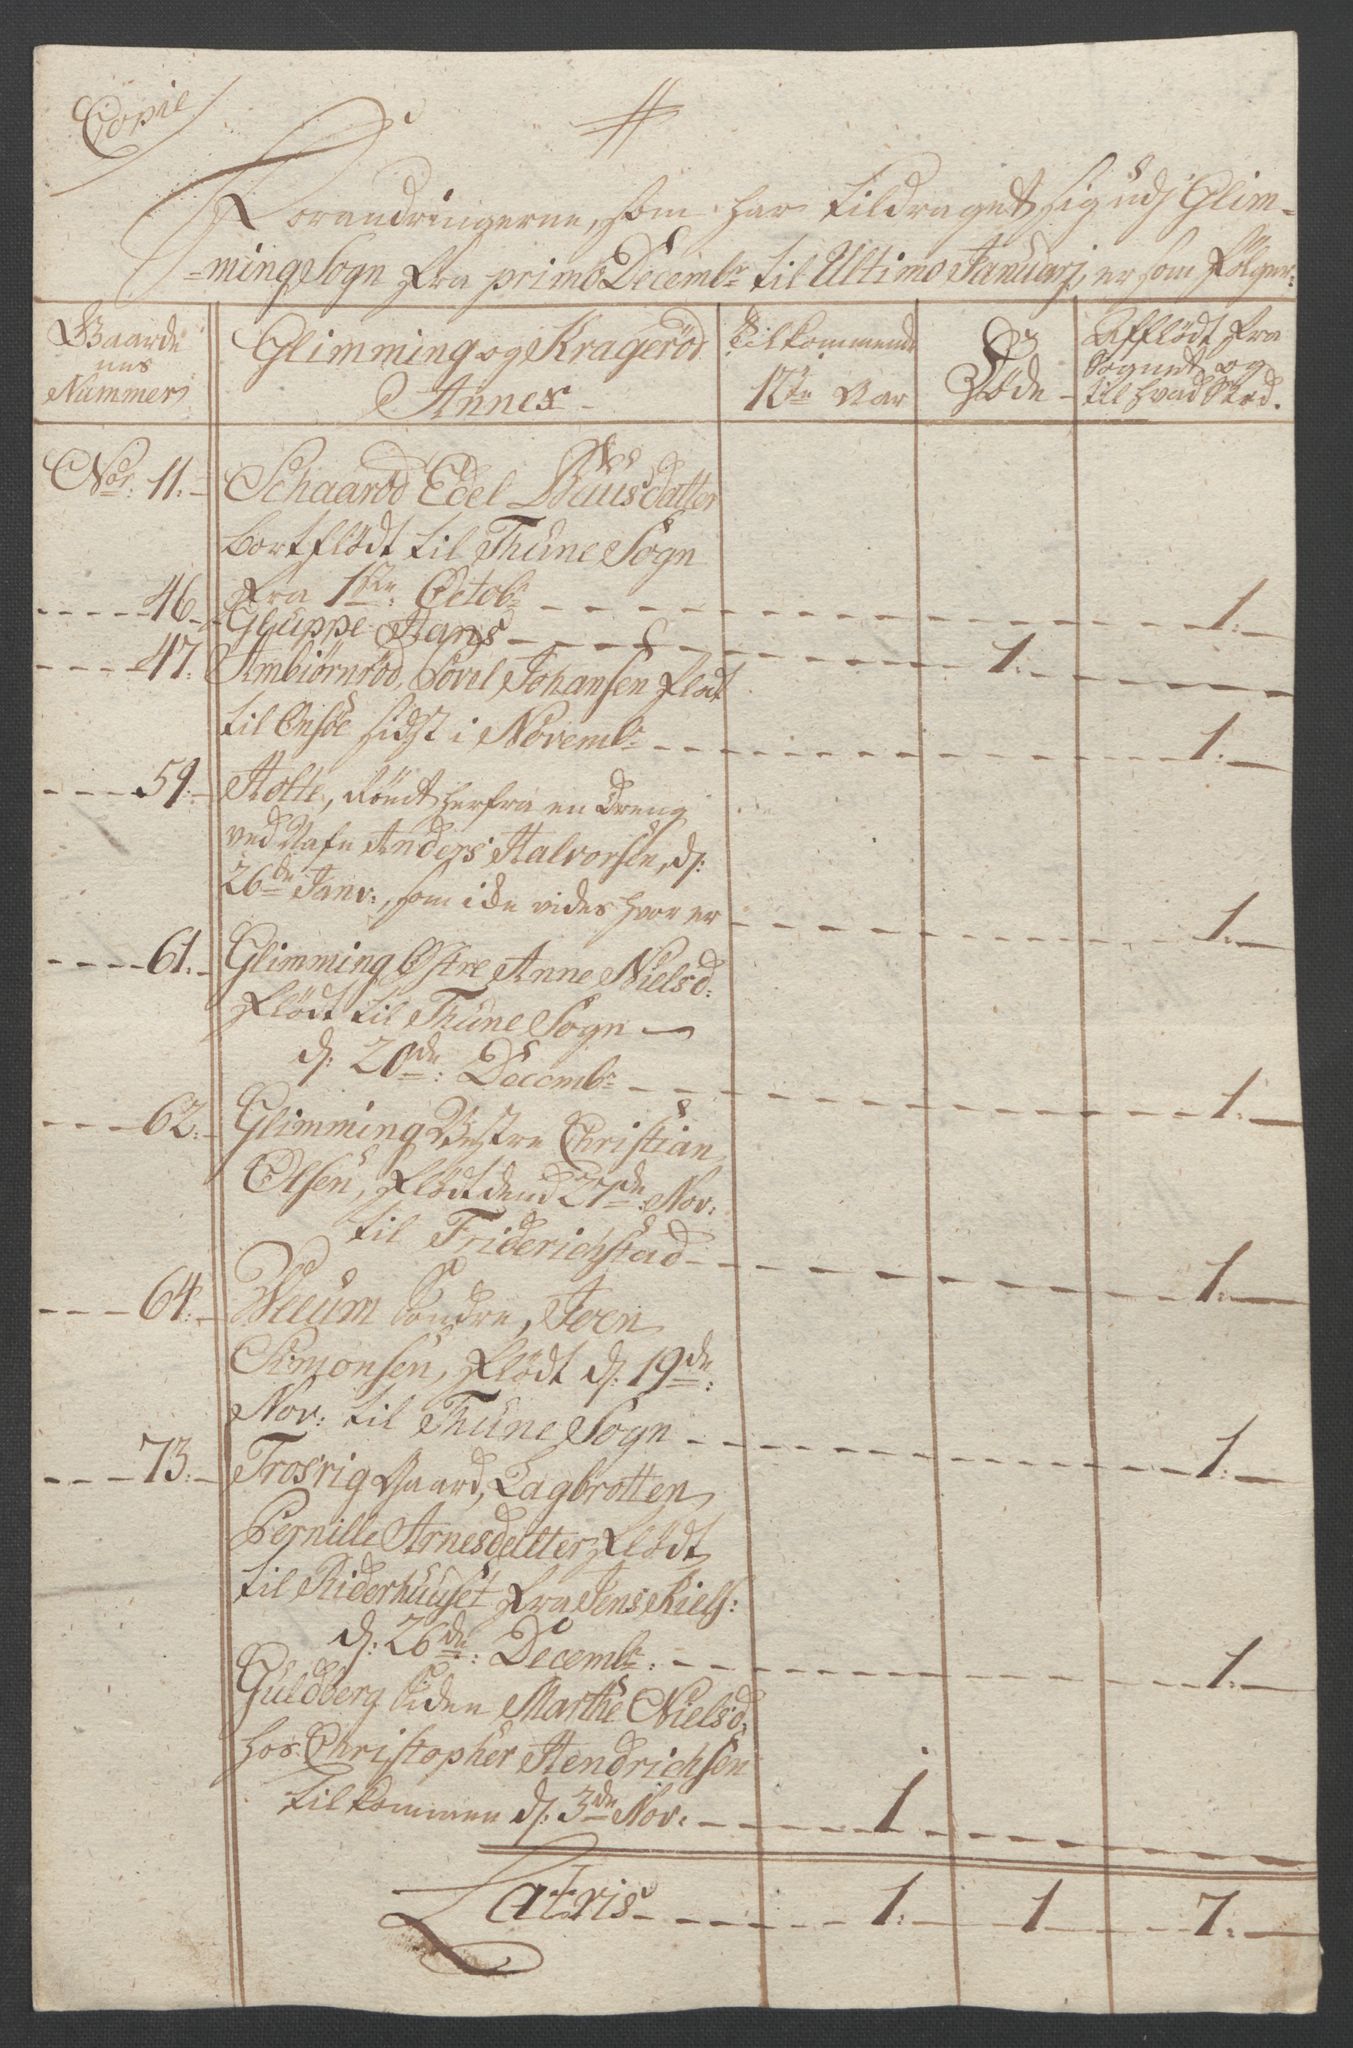 Copie
Forandringerne, som har tildraget sig udj Glim-
-ming Sogn fra primo Decembr til Ultimo Januarj, er som følger:
Gaarde
nes
Nummer
Glimming og Kragerød
Annex
Tilkommende
12te Aar
Døde
Afflødt fra
Sognet, og
til hvad Stæd.
No: 11: Schaarød Edel Buusdatter
bortflødt til Thune Sogn
fra 1ste: Octobr 1:
46 Gluppe Hans 1:
47: Ambiørnrød, Bóvil Johansen flødt
til Onsøe sidst i Novembr 1:
59: Holte, Rømt herfra en Dreng
ved Nafn Anders Halvorsen, d:
26de Janv:, som icke vides hvor er 1:
61: Glimming Østre Anne Nielsd:
flødt til Thune Sogn
d: 20de: Decembr 1:
62: Glimming Westre Christian
Olsen, flødt dend 27de Nov:
til Friderichstad 1:
64: Weeum Søndre, Joen
Simonsen, flødt d: 19de:
Nov: til Thune Sogn 1:
73: Trosvig Gaard, Lagbrotten
Pernille Arnesdatter flødt
til Riderhuuset fra Jens Niels:
d: 26de: Decembr: 1:
Guldberg Siden Marthe Nielsd:
hos Christopher Hendrichsen
tilkommen d: 3de Nov: 1
Latris 1: 1 7: